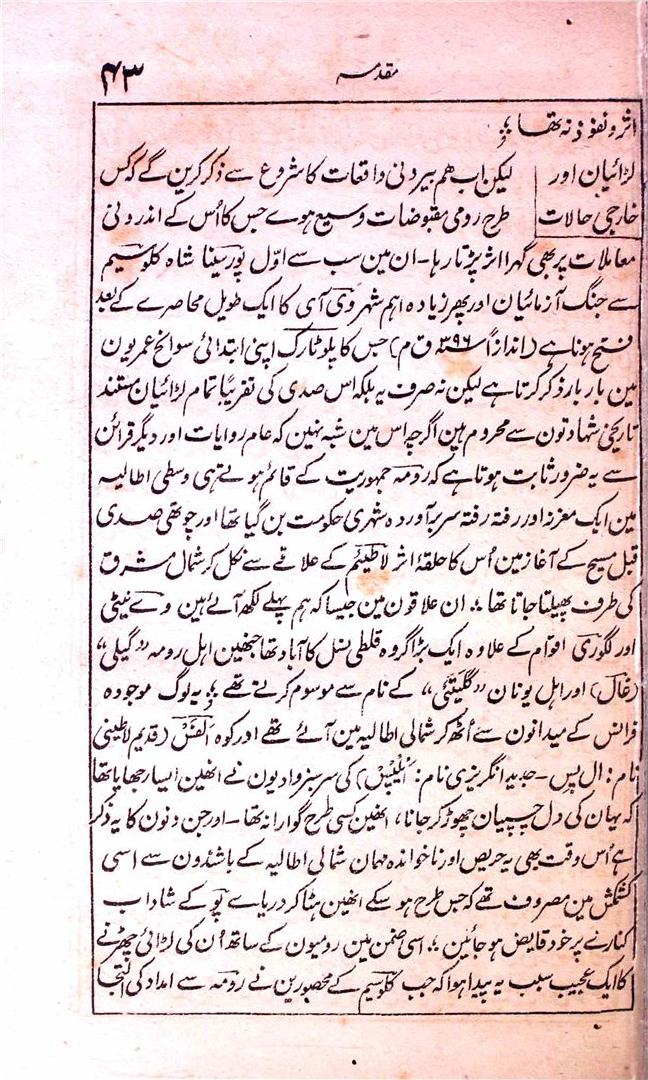 مقدمہ ۴۳
اثر و نفوذ نہ تھا ؛
لڑائیان اور لیکن اب ہم بیرونی واقعات کا شروع سے ذکر کرین گے کہ کس
خارجی حالات طرح رومی مقبوضات وسیع ہوے جس کا اُس کے اندرونی
معاملات پر بھی گہرا اثر پڑتا رہا۔ ان مین سب سے اوّل پورسینا شاہ کلوسیم
سے جنگ آزمائیان اور پھر زیادہ اہم شہر وی آی کا ایک طویل محاصرے کے بعد
فتح ہونا ہے (اندازاً ۳۹۶ ق م) جس کا پلوٹارک اپنی ابتدائی سوانح عمریون
مین بار بار ذکر کرتا ہے لیکن نہ صرف یہ بلکہ اس صدی کی تقریباً تمام لڑائیان مستند
تاریخی شہادتون سے محروم ہین اگرچہ اس مین شبہ نہین کہ عام روایات اور دیگر قرائن
سے یہ ضرور ثابت ہوتا ہے کہ رومہ جمہوریت کے قائم ہوتے ہی وسطی اطالیہ
مین ایک معزز اور رفتہ رفتہ سربرآوردہ شہری حکومت بن گیا تھا اور چوتھی صدی
قبل مسیح کے آغاز مین اُس کا حلقۂ اثر لاطینم کے علاقے سے نکل کر شمال مشرق
کی طرف پھیلتا جاتا تھا ؛ ان علاقون مین جیسا کہ ہم پہلے لکھ آئے ہین وے نیٹی
اور لگوری اقوام کے علاوہ ایک بڑا گروہ قلطی نسل کا آباد تھا جنھین اہل رومہ "گیلی"
(غال) اور اہل یونان "گلیتی" کے نام سے موسوم کرتے تھے ؛ یہ لوگ موجودہ
فرانس کے میدانون سے اُٹھ کر شمالی اطالیہ مین آئے تھے اور کوہ الفس (قدیم لاطینی
نام: ال پس۔ جدید انگریزی نام: ایلپس) کی سرسبز وادیون نے انھین ایسا رجھایا تھا
کہ یہان کی دل چسپیان چھوڑ کر جانا، انھین کسی طرح گوارا نہ تھا۔ اور جن دنون کا یہ ذکر
ہے اُس وقت بھی یہ حریص اور ناخواندہ مہمان شمالی اطالیہ کے باشندون سے اسی
کشمکش مین مصروف تھے کہ جس طرح ہو سکے انھین ہٹا کر دریاے پو کے شاداب
کنارے پر خود قابض ہو جائین ؛ اسی ضمن مین رومیون کے ساتھ اُن کی لڑائی چھڑنے
کا ایک عجیب سبب یہ پیدا ہوا کہ جب کلوسیم کے محصورین نے رومہ سے امداد کی التجا